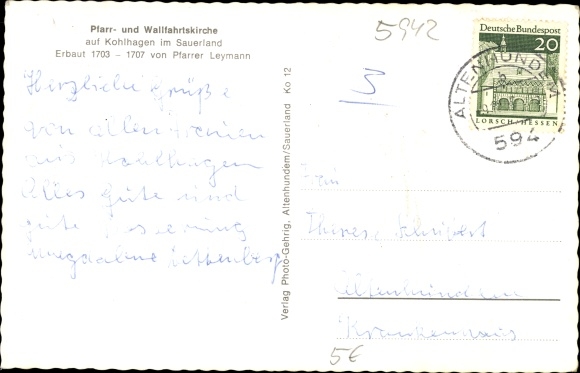 Pfarr- und Wallfahrtskirche
auf Kohlhagen im Sauerland
Erbaut 1703 - 1707 von Pfarrer Leymann
Herzliche Grüße
von allen
aus Kohlhagen
Alles Gute und
gute Besserung
Verlag Photo-Gehrig, Altenhundem/Sauerland Ko 12
5942
5
Deutsche Bundespost
20
LORSCH/HESSEN
ALTENHUNDEM
594
Frau
Altenhundem
Krankenhaus
5€